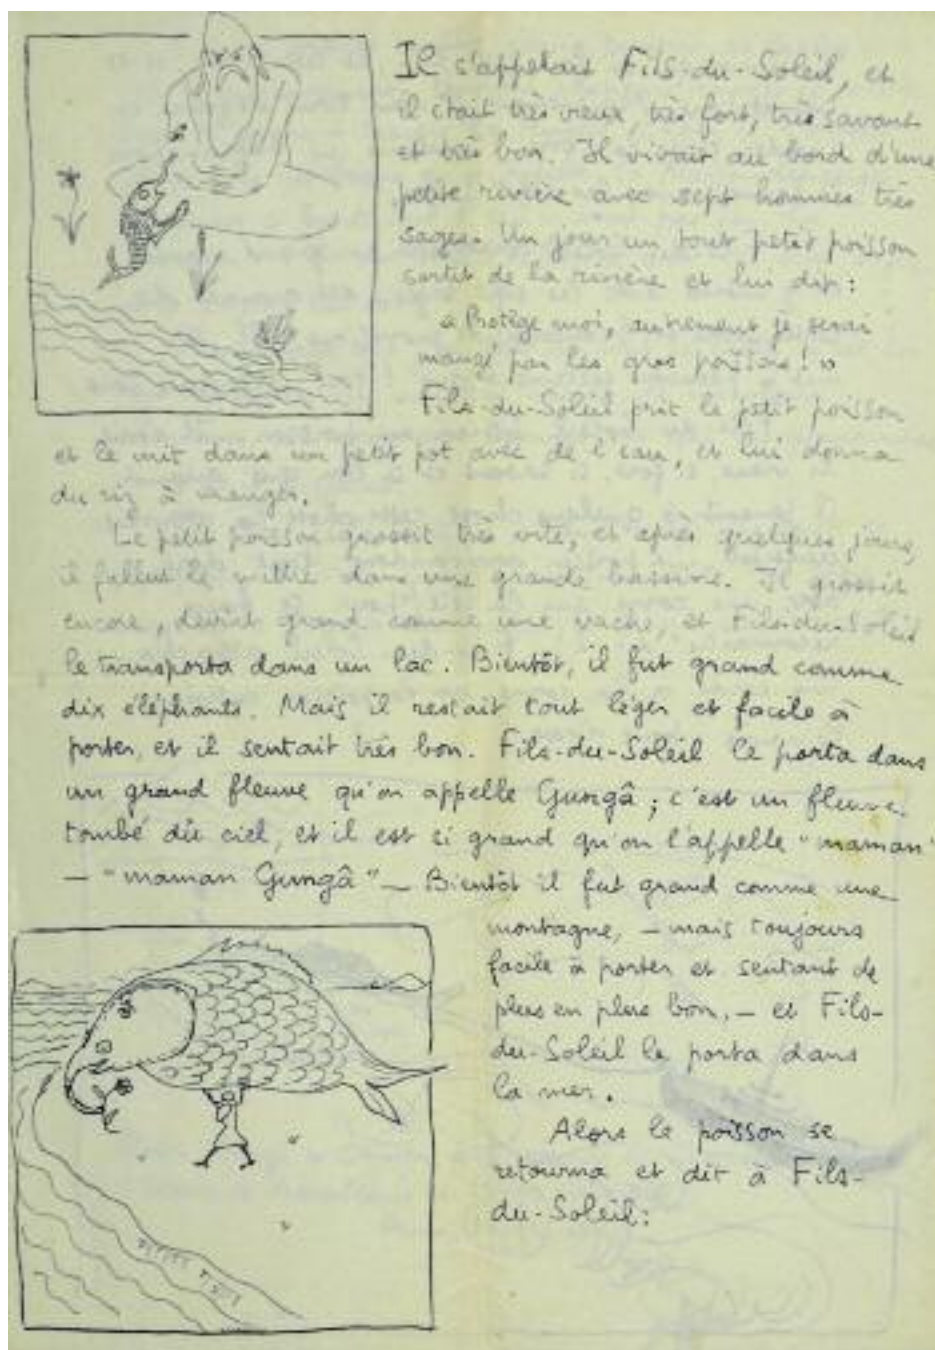 Il s'appelait Fils-du-Soleil, et
il était très vieux, très fort, très savant
et très bon. Il vivait au bord d'une
petite rivière avec sept hommes très
sages. Un jour un tout petit poisson
sortit de la rivière et lui dit :
« Protège moi, autrement je serai
mangé par les gros poissons ! »
Fils-du-Soleil prit le petit poisson
et le mit dans un petit pot avec de l'eau, et lui donna
du riz à manger.
Le petit poisson grossit très vite, et après quelques jours,
il fallut le mettre dans une grande bassine. Il grossit
encore, devint grand comme une vache, et Fils-du-Soleil
le transporta dans un lac. Bientôt, il fut grand comme
dix éléphants. Mais il restait tout léger et facile à
porter, et il sentait très bon. Fils-du-Soleil le porta dans
un grand fleuve qu'on appelle Gungâ ; c'est un fleuve
tombé du ciel, et il est si grand qu'on l'appelle "maman"
— "maman Gungâ" — Bientôt il fut grand comme une
montagne, — mais toujours
facile à porter et sentant de
plus en plus bon, — et Fils-
du-Soleil le porta dans
la mer.
Alors le poisson se
retourna et dit à Fils-
du-Soleil :